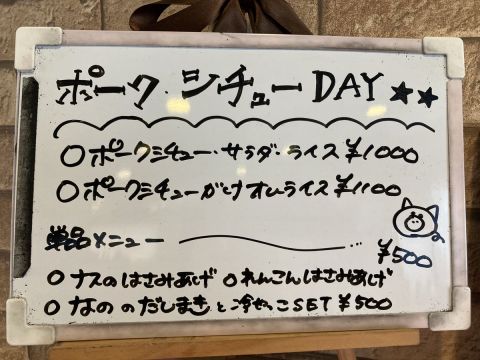 ポーク・シチューDAY★★
○ポークシチュー・サラダ・ライス ¥1000
○ポークシチューがけオムライス ¥1100
単品メニュー ¥500
○ナスのはさみあげ ○れんこんはさみあげ
○なののだしまきと冷やっこSET ¥500